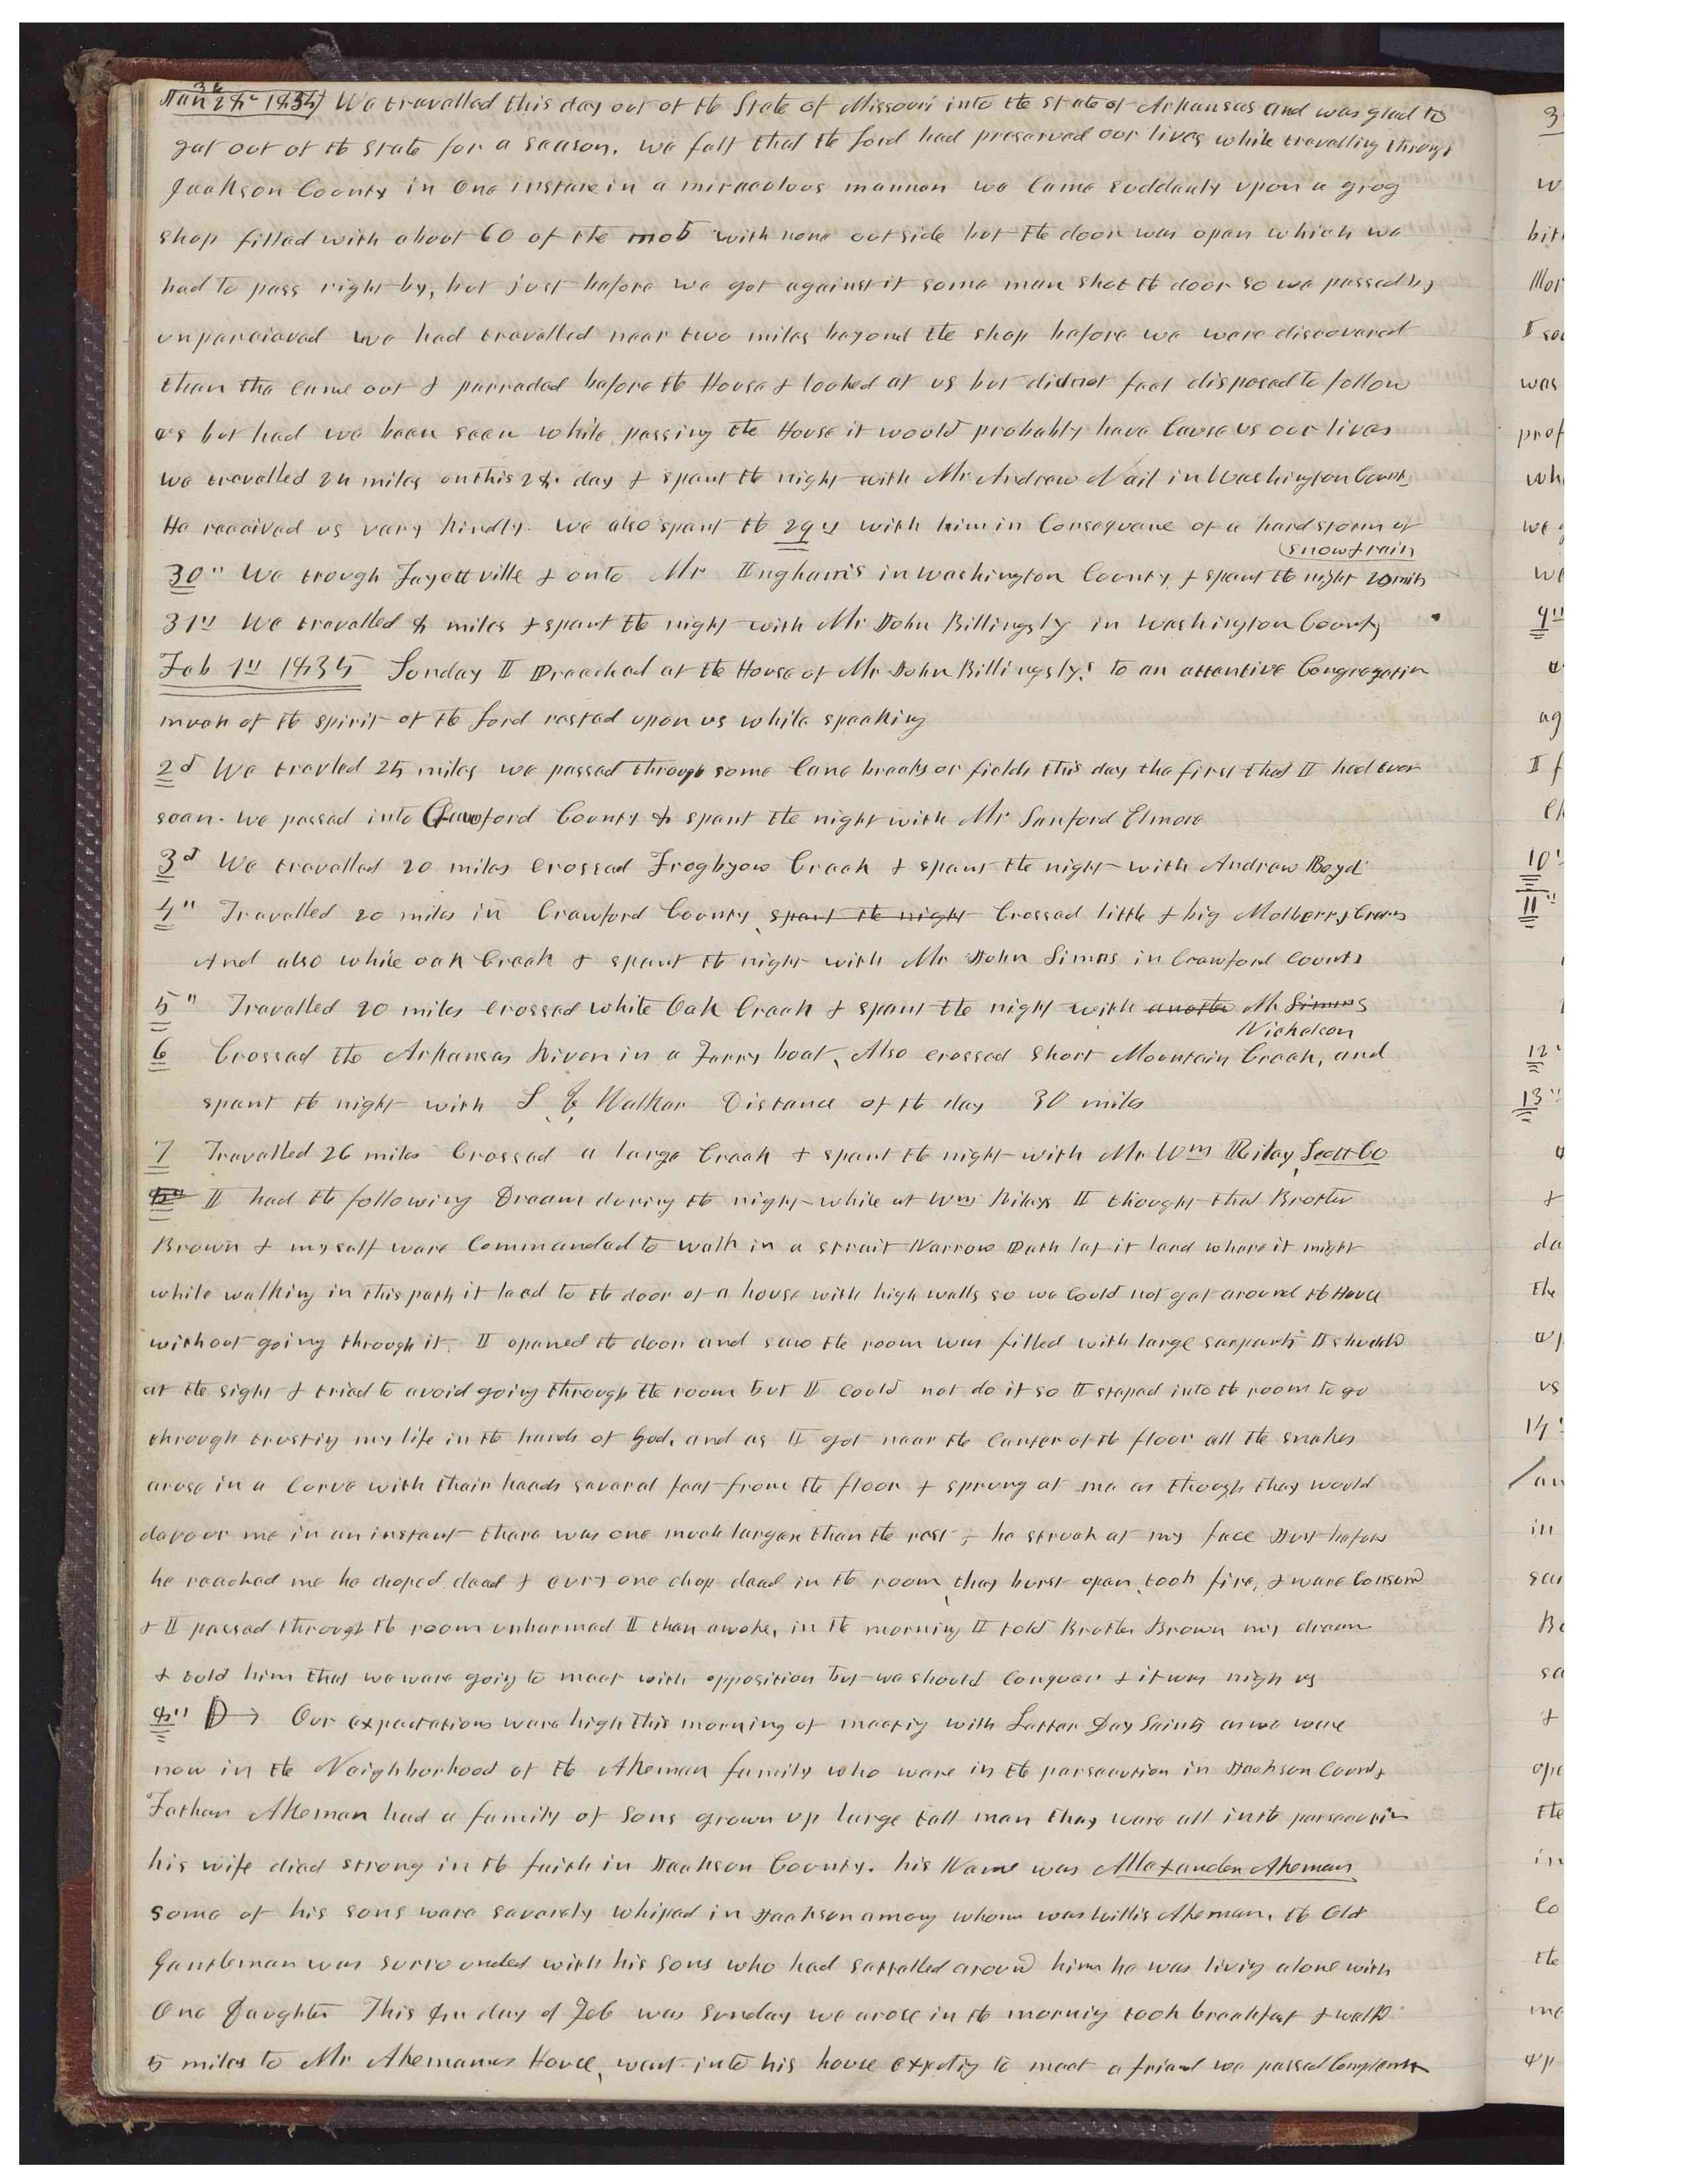 36
Jan 28th 1835 We travelled this day out of the State of Missouri into the State of Arkansas and was glad to
get out of the State for a season. We felt that the Lord had preserved our lives while travelling through
Jackson County in one instance in a miraculous manner we came suddenly upon a grog
shop filled with about 60 of the mob with none outside but the door was open which we
had to pass right by, but just before we got against it some man shut the door so we passed by
unperceived we had travelled near two miles beyond the shop before we were discovered
then the came out & parraded before the House & looked at us but did not feel disposed to follow
us but had we been seen while passing the House it would probably have cause us our lives
we travelled 24 miles on this 28. day & spent the night with Mr Andrew Nail in Washington County
He received us very kindly. We also spent the 29th with him in Consequence of a hard storm of
snow & rain
30th We trough Fayettville & onto Mr Ingham's in Washington County & spent the night 20 mils
31st We travelled 8 miles & spent the night with Mr John Billingsly in Washington County
Feb 1st 1835 Sunday I Preached at the House of Mr John Billingsly's to an attentive Congregation
much of the spirit of the Lord rested upon us while speaking
2d We travled 25 miles we passed through some Cane breaks or fields this day the first that I had ever
seen. We passed into Crawford County & spent the night with Mr Sanford Elmore
3d We travelled 20 miles crossed Frogbyow Creek & spent the night with Andrew Boyd
4th Travelled 20 miles in Crawford County, spent the night Crossed little & big Molberry Creeks
And also white oak Creek & spent the night with Mr John Simms in Crawford County
5th Travelled 20 miles crossed White Oak Creek & spent the night with another Mr Simms
Nicholson
6 Crossed the Arkansas River in a Farry boat, Also crossed short Mountain Creek, and
spent the night with Walker Distance of the day 30 miles
7 Travelled 26 miles Crossed a large Creek & spent the night with Mr Wm Riley, Scott Co
8th I had the following Dream during the night while at Wm Rileys I thought that Brother
Brown & myself were Commanded to walk in a strait Narrow Path let it lead where it might
while walking in this path it lead to the door of a house with high walls so we Could not get around the House
without going through it. I opened the door and saw the room was filled with large serpents I shudd
at the sight & tried to avoid going through the room but I could not do it so I steped into the room to go
through trusting my life in the hands of God, and as I got near the Center of the floor all the snakes
arose in a Corve with their heads several feet from the floor & sprung at me as though they would
devour me in an instant there was one much larger than the rest, he struck at my face Just before
he reached me he droped dead & evry one drop dead in the room, they burst open took fire, & were Consumd
& I passed through the room unharmed I then awoke, in the morning I told Brother Brown my dream
& told him that we were going to meet with opposition but we should Conquer & it was nigh us
8th Our expectations were high this morning of meeting with Latter Day Saints as we were
now in the Neighborhood of the Akeman family who were in the persecution in Jackson County
Father Akeman had a family of sons grown up large tall men they were all in the persecution
his wife died strong in the faith in Jackson County. his Name was Allexander Akeman
some of his sons were severely whiped in Jackson among whom was Willis Akeman. the Old
Gentleman was surrounded with his sons who had settelled around him he was living alone with
One Daughter This 8th day of Feb was sunday we arose in the morning took breakfast & walkd
5 miles to Mr Akemans House, went into his house expcting to meet a friend we passed Complements